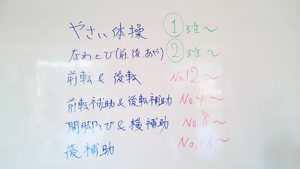 やさい体操 ①班〜
なわとび(前,後,あや) ②班〜
前転&後転 No.12〜
前転補助&後転補助 No.4〜
開脚とび&横補助 No.8〜
後補助 No.13〜